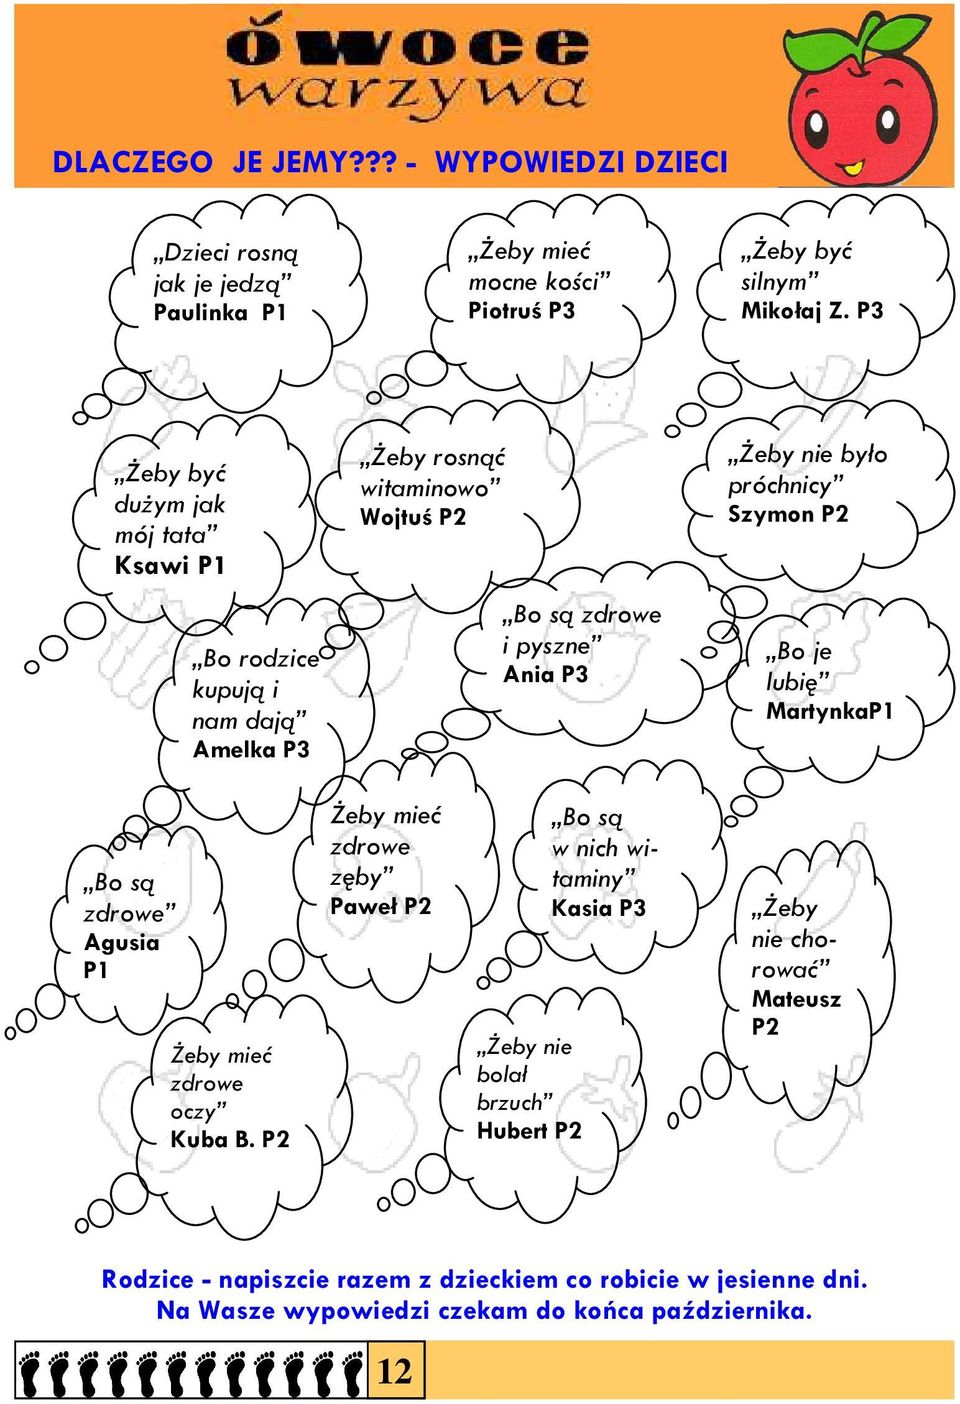 ÓWOCE
warzywa
DLACZEGO JE JEMY??? - WYPOWIEDZI DZIECI
„Dzieci rosną
jak je jedzą”
Paulinka P1
„Żeby mieć
mocne kości”
Piotruś P3
„Żeby być
silnym”
Mikołaj Z. P3
„Żeby być
dużym jak
mój tata”
Ksawi P1
„Żeby rosnąć
witaminowo”
Wojtuś P2
„Żeby nie było
próchnicy”
Szymon P2
„Bo rodzice
kupują i
nam dają”
Amelka P3
„Bo są zdrowe
i pyszne”
Ania P3
„Bo je
lubię”
MartynkaP1
„Bo są
zdrowe”
Agusia
P1
Żeby mieć
zdrowe
zęby”
Paweł P2
„Bo są
w nich wi-
taminy”
Kasia P3
„Żeby
nie cho-
rować”
Mateusz
P2
Żeby mieć
zdrowe
oczy”
Kuba B. P2
„Żeby nie
bolał
brzuch”
Hubert P2
Rodzice - napiszcie razem z dzieckiem co robicie w jesienne dni.
Na Wasze wypowiedzi czekam do końca października.
12